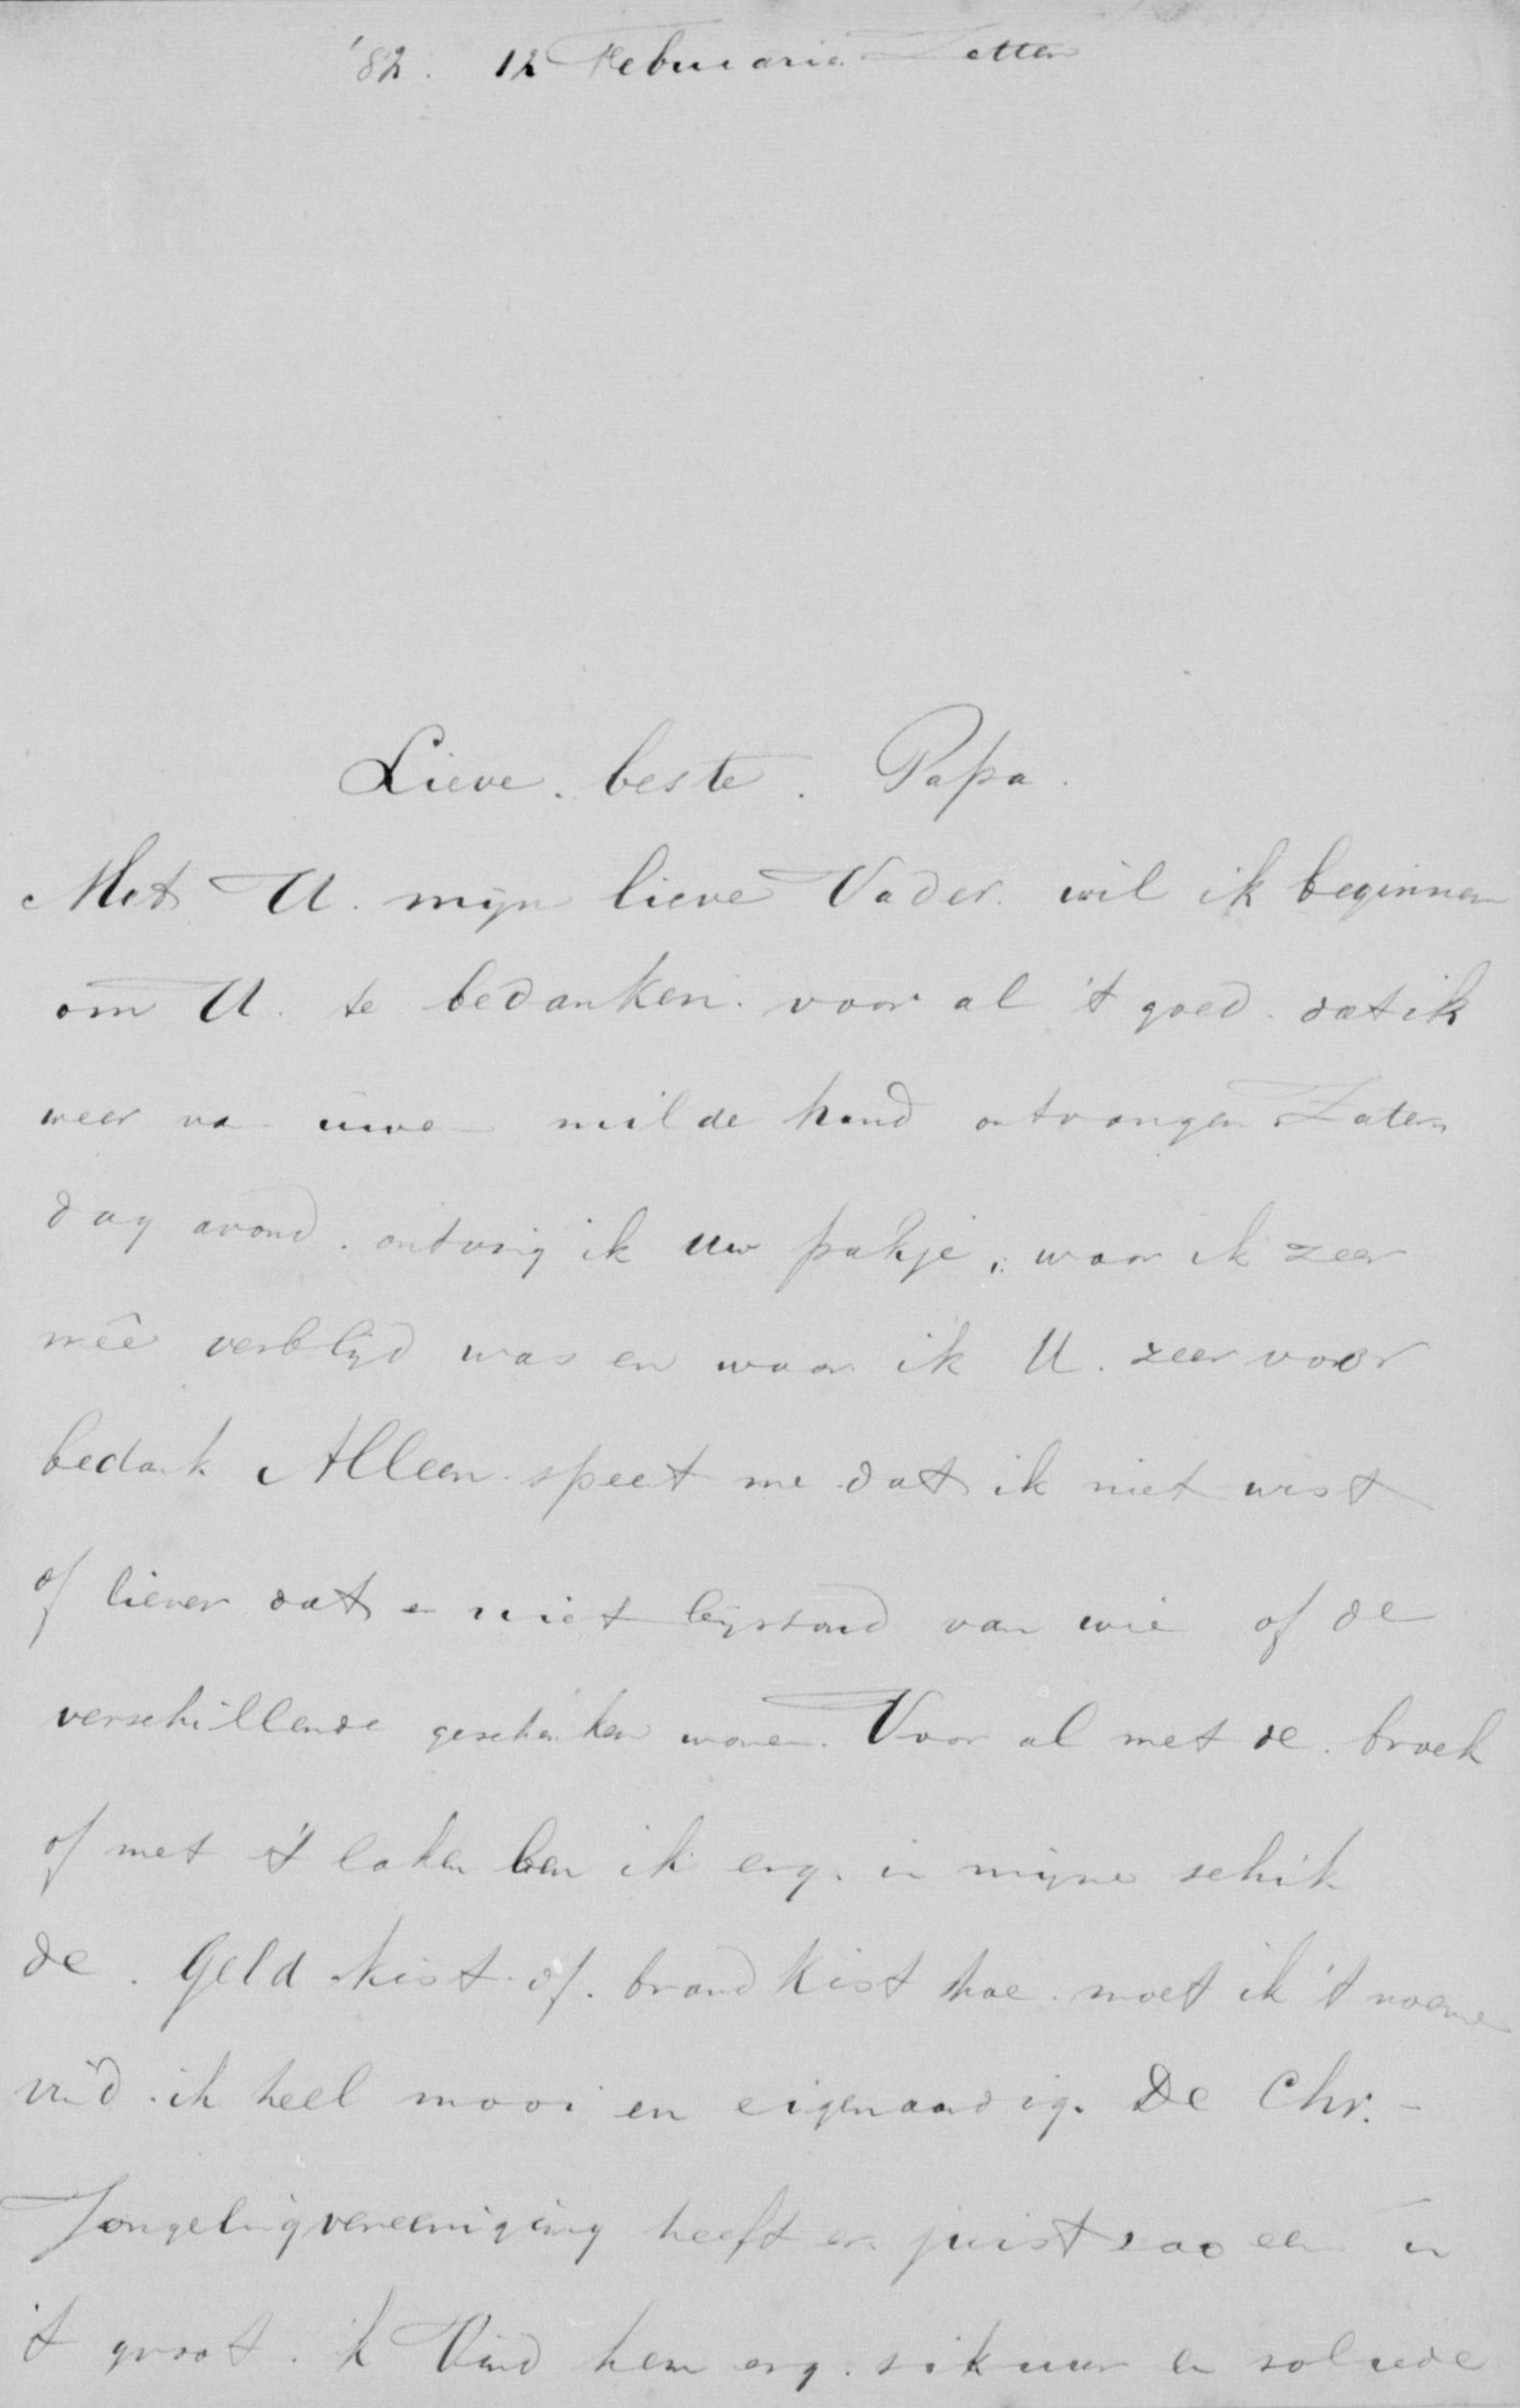 '82. 12 Februarie Zetten
Lieve. beste. Papa.
Met U. mijn lieve Vader. wil ik beginnen
om U. te bedanken. voor al 't goed. dat ik
weer va uwe milde hand ontvangen Zater
dag avond. ontving ik uw pakje, waar ik zeer
meê verblijd was en waar ik U. zeer voor
bedank Alleen speet me dat ik niet wist
of liever dat er niet bijstond van wie of de
verschillende geschenken waren. Voor al met de broek
of met 't laken ben ik erg. in mijne schik
de. Geld kist of. brand Kist hoe. moet ik 't noeme
vind. ik heel mooi en eigenaardig. De Chr.-
Jongelingvereeniging heeft er juist zoo een in
't groot. ik Vind hem erg. sikuur en soliede